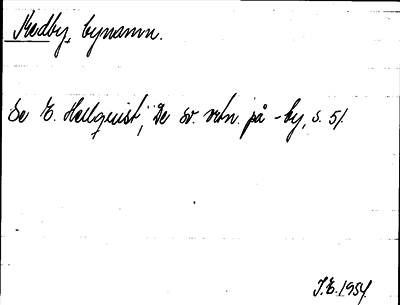 Nedby, bynamn.
Se E. Hellquist, De sv. ortn. på -by, s. 51.
J.E. 1954.